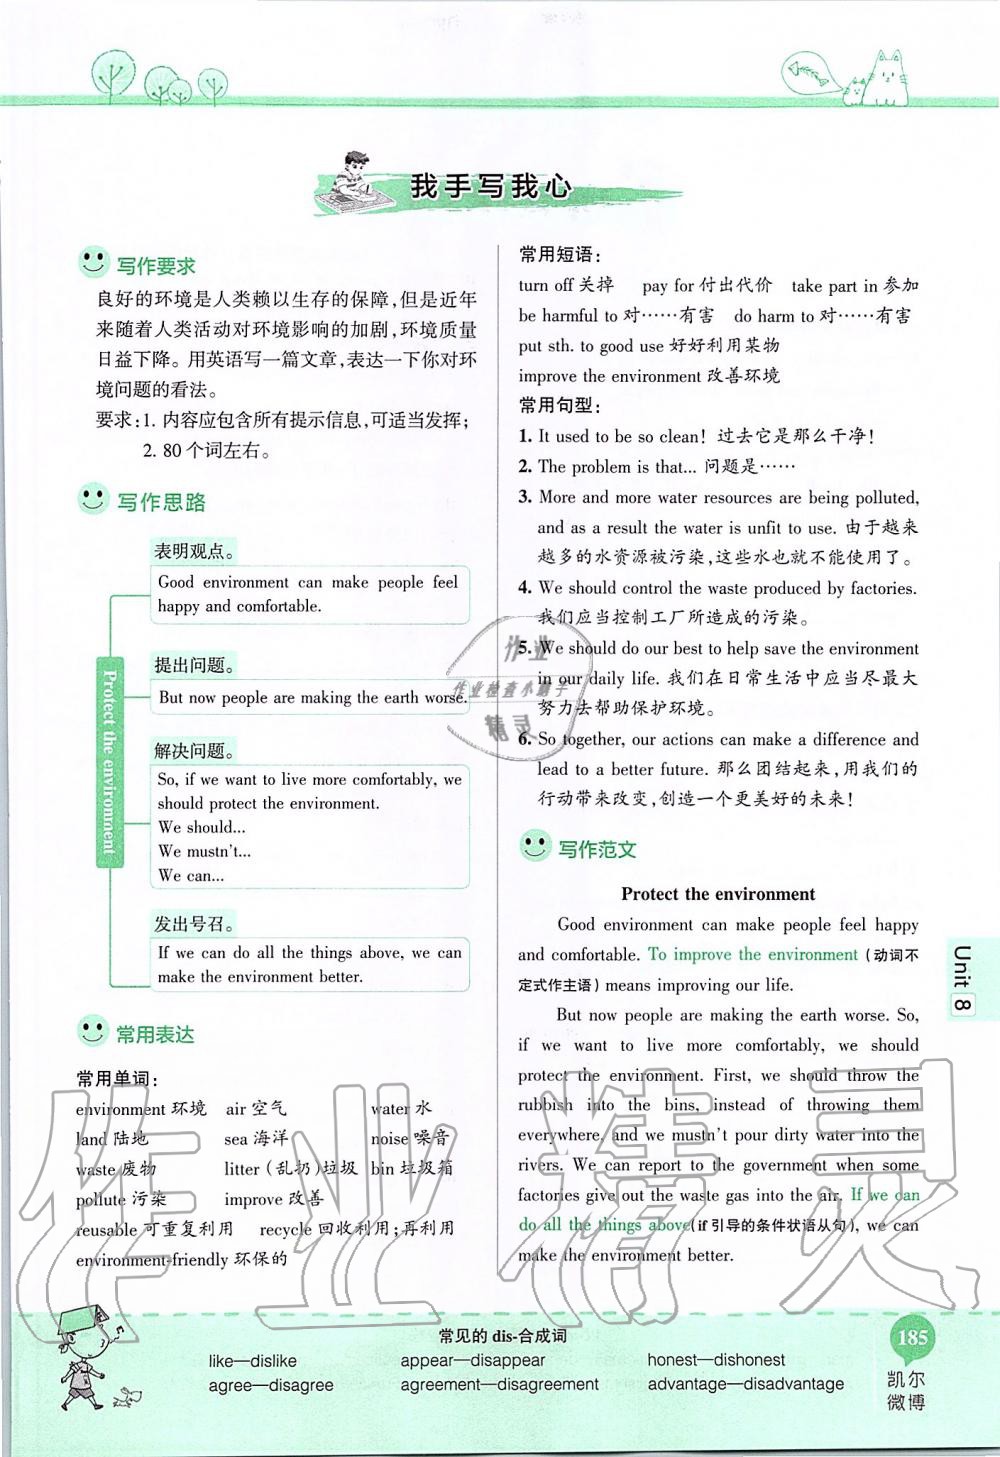 我手写我心
写作要求
良好的环境是人类赖以生存的保障，但是近年
来随着人类活动对环境影响的加剧，环境质量
日益下降。用英语写一篇文章，表达一下你对环
境问题的看法。
要求：1. 内容应包含所有提示信息，可适当发挥；
2. 80 个词左右。
写作思路
Protect the environment
表明观点。
Good environment can make people feel
happy and comfortable.
提出问题。
But now people are making the earth worse.
解决问题。
So, if we want to live more comfortably, we
should protect the environment.
We should...
We mustn't...
We can...
发出号召。
If we can do all the things above, we can
make the environment better.
常用表达
常用单词：
environment 环境 air 空气 water 水
land 陆地 sea 海洋 noise 噪音
waste 废物 litter（乱扔）垃圾 bin 垃圾箱
pollute 污染 improve 改善
reusable 可重复利用 recycle 回收利用；再利用
environment-friendly 环保的
常用短语：
turn off 关掉 pay for 付出代价 take part in 参加
be harmful to 对……有害 do harm to 对……有害
put sth. to good use 好好利用某物
improve the environment 改善环境
常用句型：
1. It used to be so clean! 过去它是那么干净！
2. The problem is that... 问题是……
3. More and more water resources are being polluted,
and as a result the water is unfit to use. 由于越来
越多的水资源被污染，这些水也就不能使用了。
4. We should control the waste produced by factories.
我们应当控制工厂所造成的污染。
5. We should do our best to help save the environment
in our daily life. 我们在日常生活中应当尽最大
努力去帮助保护环境。
6. So together, our actions can make a difference and
lead to a better future. 那么团结起来，用我们的
行动带来改变，创造一个更美好的未来！
写作范文
Protect the environment
Good environment can make people feel happy
and comfortable. To improve the environment（动词不
定式作主语）means improving our life.
But now people are making the earth worse. So,
if we want to live more comfortably, we should
protect the environment. First, we should throw the
rubbish into the bins, instead of throwing them
everywhere, and we mustn't pour dirty water into the
rivers. We can report to the government when some
factories give out the waste gas into the air. If we can
do all the things above（if 引导的条件状语从句）, we can
make the environment better.
Unit 8
作业
作业检查小助手
精灵
作业精灵
常见的 dis-合成词
like—dislike appear—disappear honest—dishonest
agree—disagree agreement—disagreement advantage—disadvantage
185
凯尔
微博